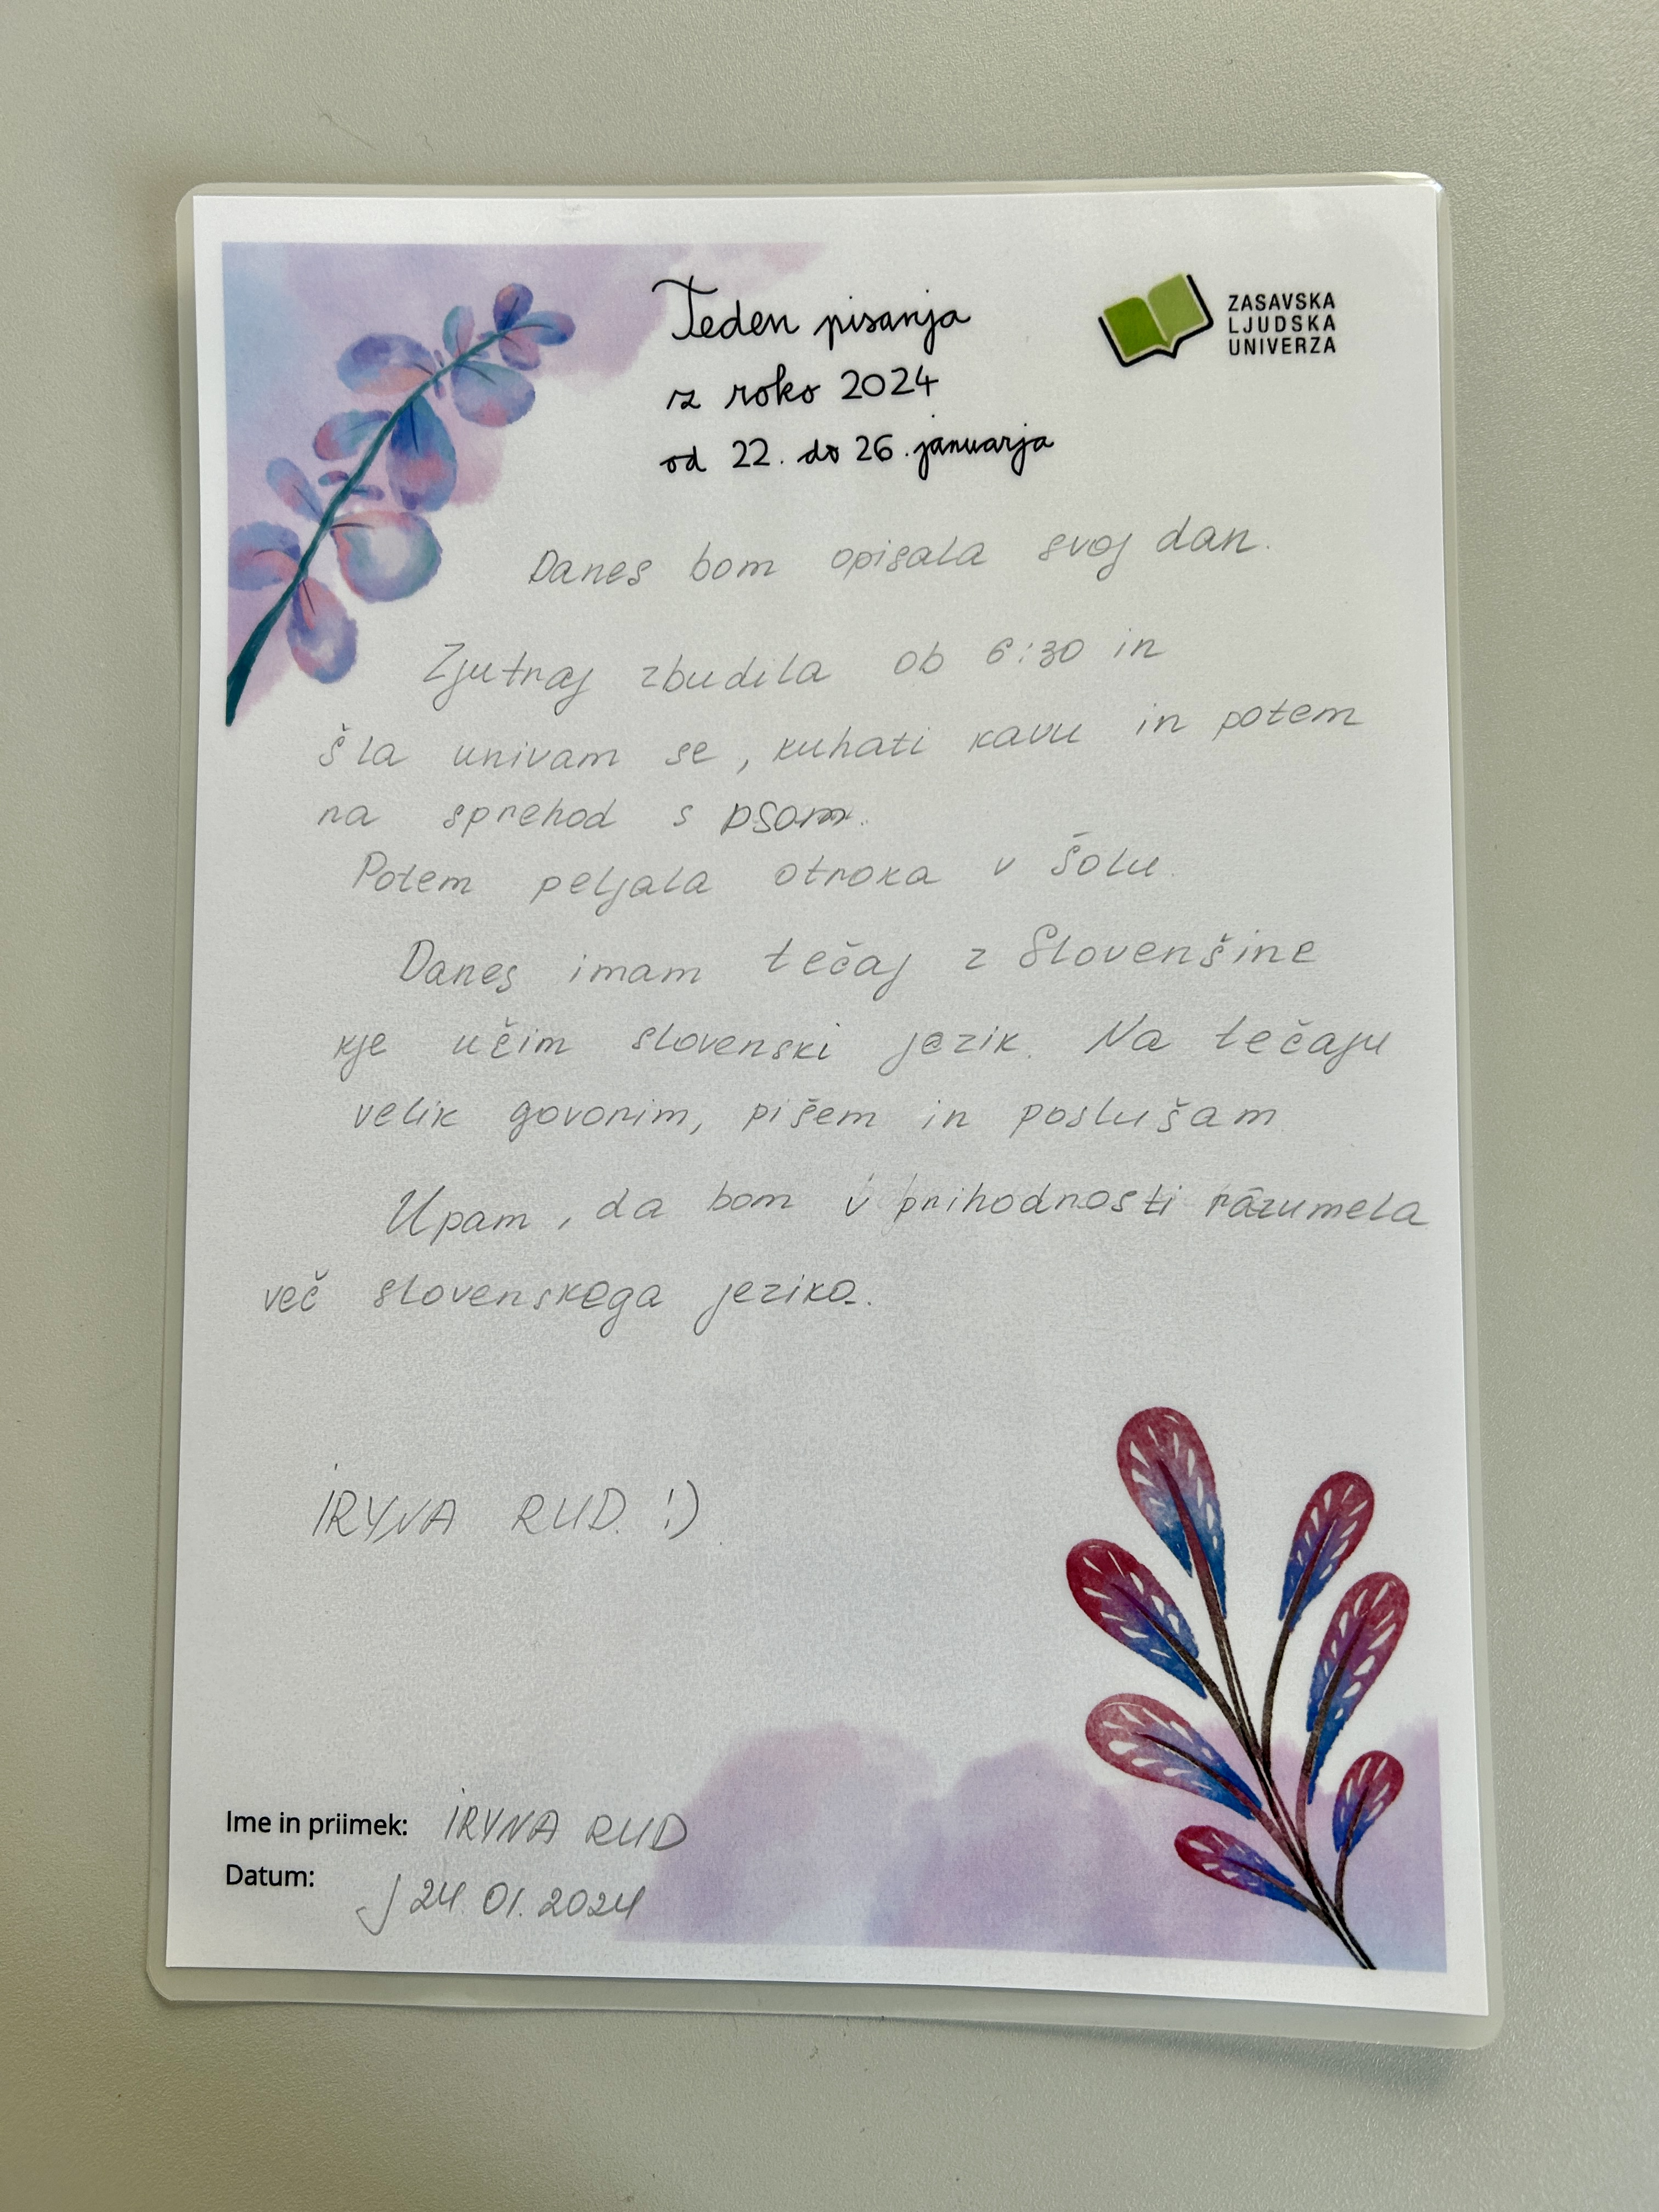 Teden pisanja
z roko 2024
od 22. do 26. januarja
ZASAVSKA
LJUDSKA
UNIVERZA
Danes bom opisala svoj dan.
Zjutraj zbudila ob 6:30 in
šla univam se, kuhati kavu in potem
na sprehod s psom.
Potem peljala otroka v šolu.
Danes imam tečaj z Slovenšine
kje učim slovenski jezik. Na tečaju
velik govorim, pišem in poslušam
Upam, da bom v prihodnosti razumela
več slovenskega jezika.
IRYNA RUD. :)
Ime in priimek: IRYNA RUD
Datum: 24.01.2024